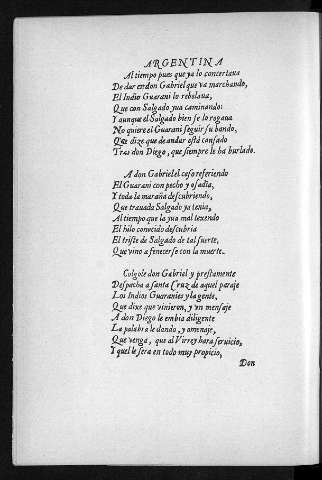 ARGENTINA
Al tiempo pues que ya lo concertaua
De dar en don Gabriel que va marchando,
El Indio Guarani lo rebelaua,
Que con Salgado yua caminando:
Y aunque el Salgado bien se lo rogaua
No quiere el Guarani seguir su bando,
Que dize que de andar està cansado
Tras don Diego, que siempre le ha burlado.
A don Gabriel el caso refiriendo
El Guarani con pecho y osadia,
Y toda la maraña descubriendo,
Que trauada Salgado ya tenia,
Al tiempo que la yua mal texendo
El hilo conocido descubria
El triste de Salgado de tal suerte,
Que vino a fenecerse con la muerte.
Colgole don Gabriel y prestamente
Despacha a santa Cruz de aquel paraje
Los Indios Guaranies y la gente,
Que dixe que vinieron, y vn mensaje
A don Diego le embia diligente
La palabra le dando, y omenaje,
Que venga, que al Virrey hara seruicio,
Y quel le sera en todo muy propicio,
Don